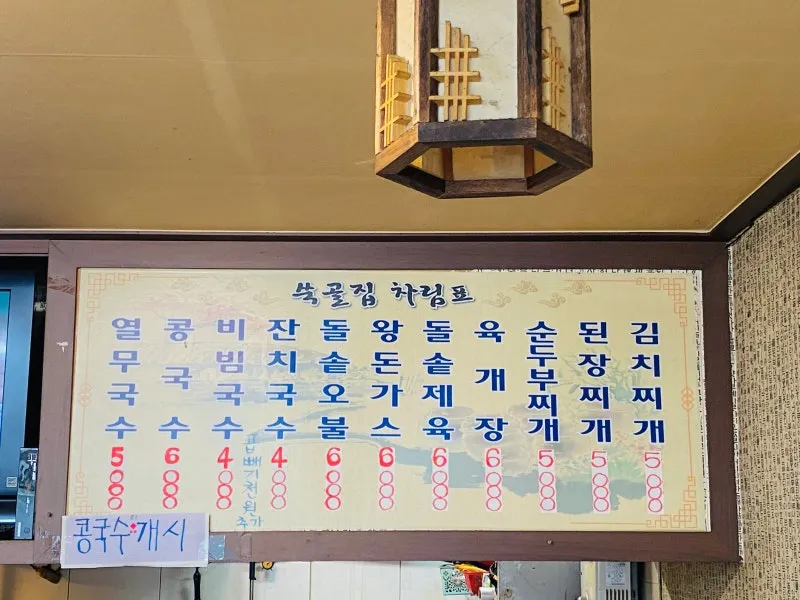 쑥골집 차림표
열무국수 5000
콩국수 6000
비빔국수 4000
잔치국수 4000
곱빼기천원추가
돌솥오불 6000
왕돈가스 6000
돌솥제육 6000
육개장 6000
순두부찌개 5000
된장찌개 5000
김치찌개 5000
콩국수*개시